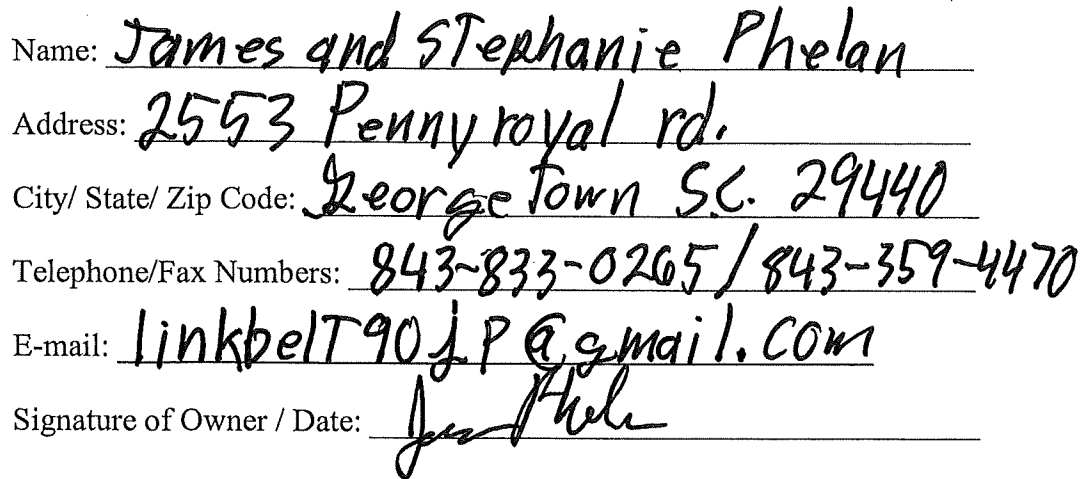 Name: James and STephanie Phelan
Address: 2553 Pennyroyal rd.
City/ State/ Zip Code: GeorgeTown S.C. 29440
Telephone/Fax Numbers: 843-833-0265 / 843-359-4470
E-mail: linkbelT90jP@gmail.com
Signature of Owner / Date: